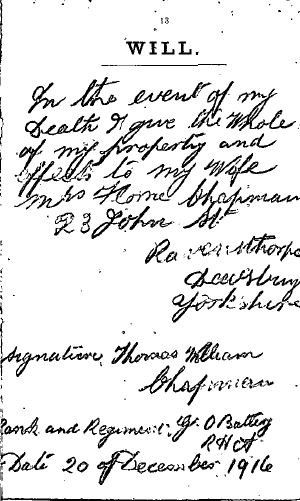 13
WILL.
In the event of my
Death I give the Whole
of my property and
effects to my Wife
Mrs Chapman
23 John St
Ravensthorpe
Dewsbury
Yorkshire
Signature Thomas William
Chapman
Rank and Regiment Battery
Date 20 of December 1916